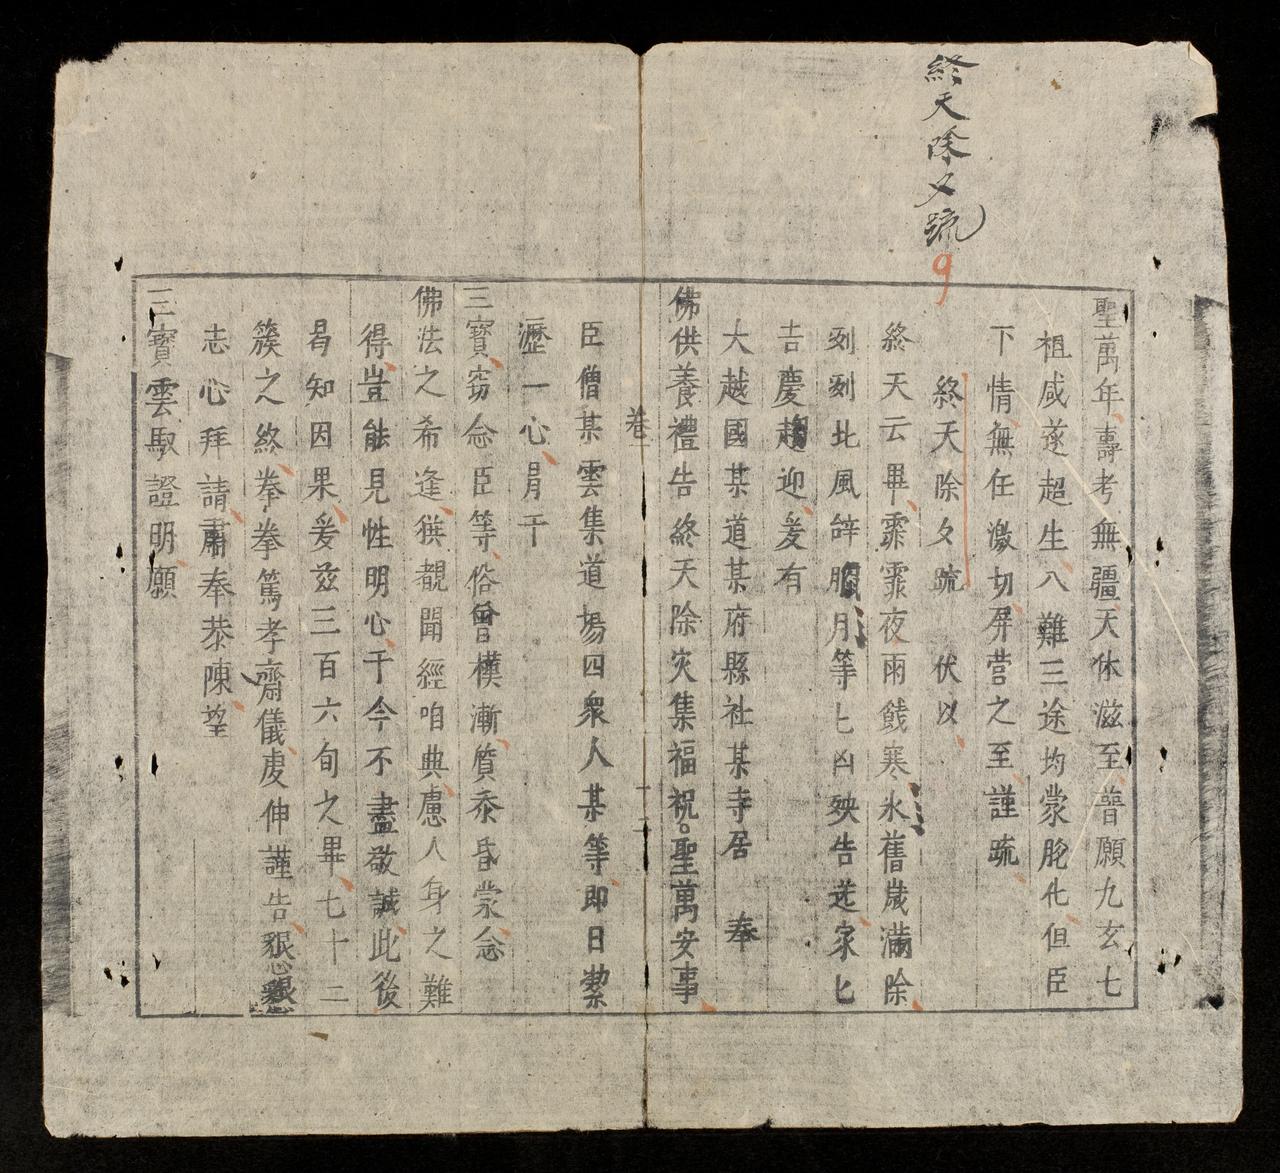 終天除夕疏
9
聖萬年壽考無疆天休滋至普願九玄七
祖咸遂超生八難三途均蒙脫化但臣
下情無任激切屏营之至謹疏
終天除夕疏 伏以
終天云畢霏霏夜雨餞寒氷舊歲滿除
刻刻北風辞臘月等七凶殃告送家匕
吉慶趨迎爰有
大越國某道某府縣社某寺居 奉
佛供養禮告終天除灾集福祝聖萬安事
臣僧某雲集道場四衆人某等即日
瀝一心扃干
卷 十二
三寶窃念臣等俗曾樸漸質忝昏蒙念
佛法之希逢獲覩聞經咱典慮人身之難
得豈能見性明心于今不盡敬誠此後
曷知因果爰茲三百六旬之畢七十二
簇之終拳拳篤孝齋儀虔伸謹告懇懇
志心拜請肅奉恭陳望
三寶雲馭證明願